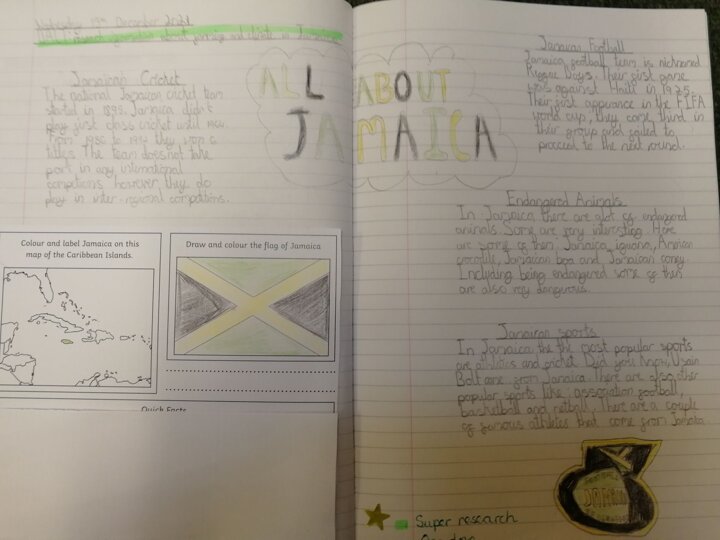 Wednesday December
research information about
Jamaican Cricket
The national Jamaican cricket team
started in 1895. Jamaica didn't
play first class cricket until
from to they
titles. The team does not take
part in any international
however they do
play in inter-regional
ALL ABOUT
JAMAICA
Colour and label Jamaica on this
map of the Caribbean Islands.
Draw and colour the flag of Jamaica
Quick Facts
Jamaican Football
Jamaica football team is nicknamed
Their first game
was against Haiti in 1925.
Their first in the FIFA
world cup, they came third in
their group and failed to
proceed to the next round.
Endangered Animals
In Jamaica there are alot of endangered
animals. Some are very interesting. Here
are some of them, Jamaica iguana,
crocodile, Jamaican boa and Jamaican coney.
Including being endangered some of them
are also very dangerous.
Jamaican sports
In Jamaica the the most popular sports
are athletics and cricket. Did you know, Usain
Bolt came from Jamaica. There are also other
popular sports like: association football,
basketball and netball. There are a couple
of famous athletes that come from Jamaica.
JAMAICA
Super research